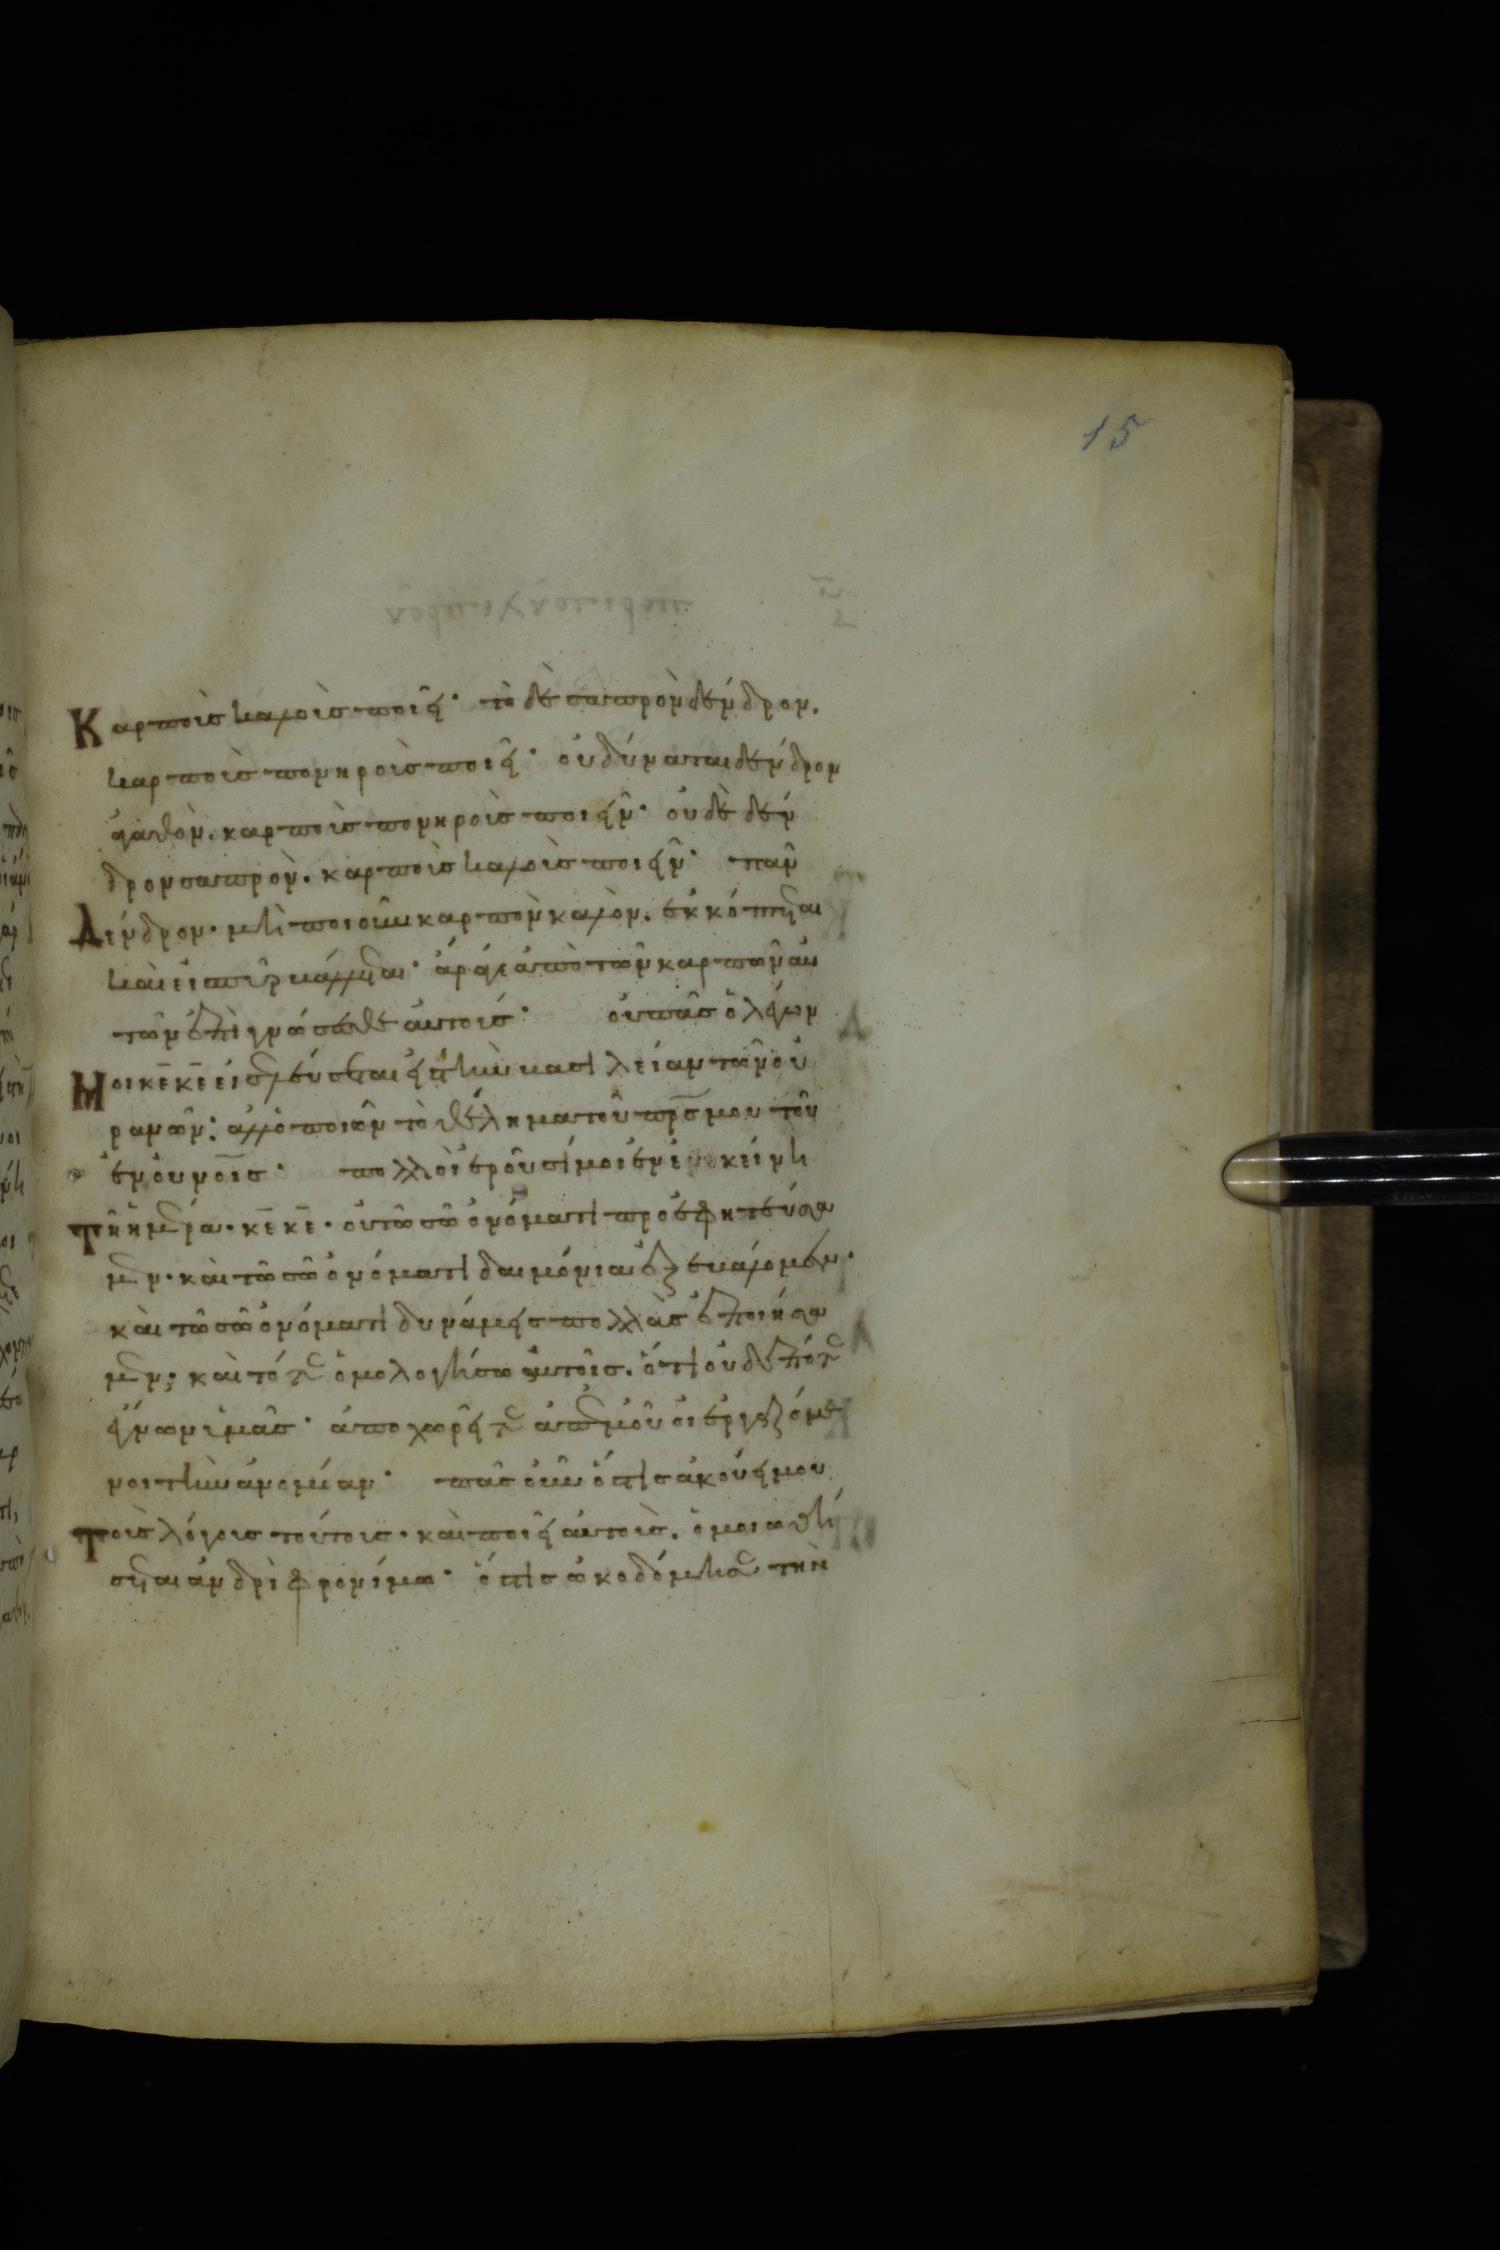 15
Καρποὺσ καλοὺσ ποιεῖ· τὸ δὲ σαπρὸν δένδρον.
καρποὺσ πονηροὺσ ποιεῖ· οὐ δύναται δένδρον
ἀγαθὸν. καρποὺσ πονηροὺσ ποιεῖν· οὐδὲ δέν
δρον σαπρὸν. καρποὺσ καλοὺσ ποιεῖν· πᾶν
Δένδρον· μὴ ποιοῦν καρπὸν καλὸν. ἐκκόπτεται
καὶ εἰς πῦρ βάλλεται· ἄραγε ἀπὸ τῶν καρπῶν αὐ
τῶν ἐπιγνώσεσθε αὐτούσ· οὐ πᾶσ ὁ λέγων
Μοι κ̅ε̅ κ̅ε̅ εἰσελεύσεται εἰς τὴν βασιλείαν τῶν οὐ
ρανῶν· ἀλλ' ὁ ποιῶν τὸ θέλημα τοῦ π̅ρ̅σ̅ μου τοῦ
ἐν οὐνοῖσ· πολλοὶ ἐροῦσί μοι ἐν ἐκείνη
Τῆ ἡμέρα. κ̅ε̅ κ̅ε̅. οὐ τῶ σῶ ὀνόματι προεφητεύσα
μεν. καὶ τῶ σῶ ὀνόματι δαιμόνια ἐξεβάλομεν.
καὶ τῶ σῶ ὀνόματι δυνάμεισ πολλὰσ ἐποιήσα
μεν; καὶ τότε ὁμολογήσω αὐτοῖσ. ὅτι οὐδέποτε
ἔγνων ὑμᾶσ· ἀποχωρεῖτε ἀπ' ἐμοῦ οἱ ἐργαζόμε
νοι τὴν ἀνομίαν· πᾶσ οὖν ὅστισ ἀκούει μου
Τοὺσ λόγουσ τούτουσ. καὶ ποιεῖ αὐτοὺσ. ὁμοιωθή
σεται ἀνδρὶ φρονίμω· ὅστισ ὠκοδόμησε τὴν